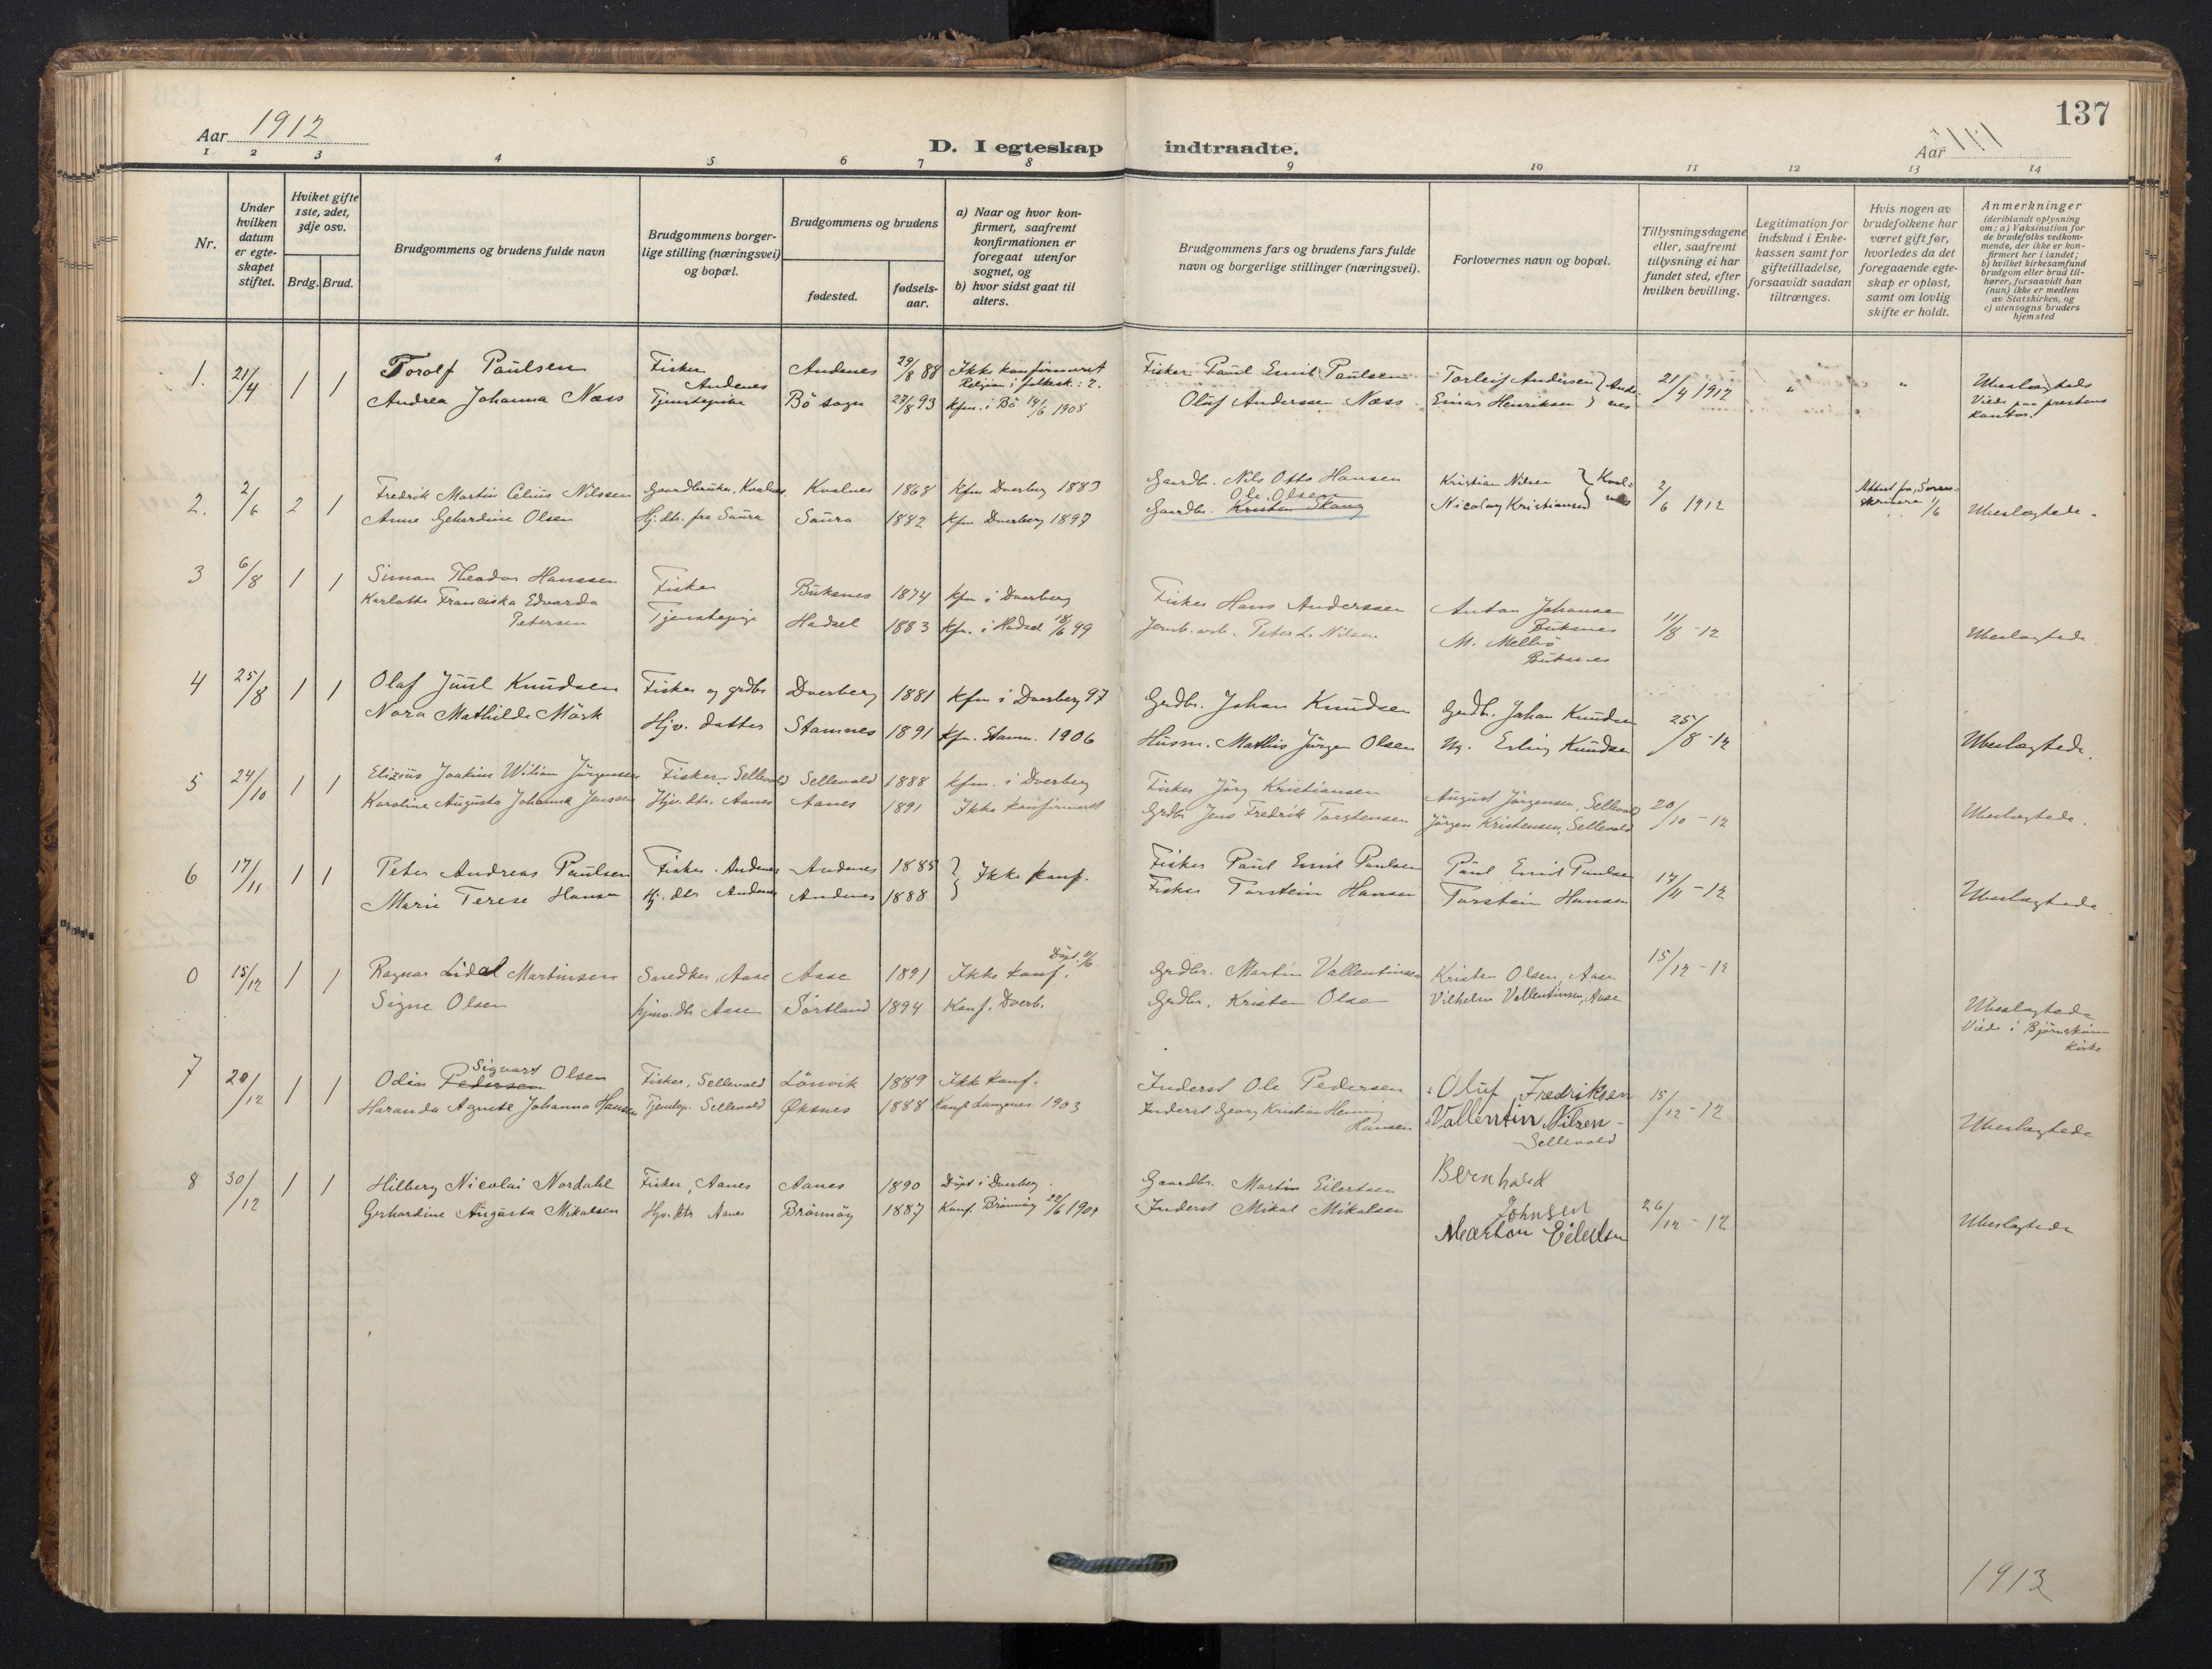 137
Aar 1912
D. I egteskap indtraadte.
Aar
1 2 3 4 5 6 7 8 9 10 11 12 13 14
Nr.
Under hvilken datum er egteskapet stiftet.
Hviket gifte 1ste, 2det, 3dje osv.
Brdg. Brud.
Brudgommens og brudens fulde navn
Brudgommens borgerlige stilling (næringsvei) og bopæl.
Brudgommens og brudens
fødested.
fødselsaar.
a) Naar og hvor konfirmert, saafremt konfirmationen er foregaat utenfor sognet, og
b) hvor sidst gaat til alters.
Brudgommens fars og brudens fars fulde navn og borgerlige stillinger (næringsvei).
Forlovernes navn og bopæl.
Tillysningsdagene eller, saafremt tillysning ei har fundet sted, efter hvilken bevilling.
Legitimation for indskud i Enkekassen samt for giftetilladelse, forsaavidt saadan tiltrænges.
Hvis nogen av brudefolkene har været gift før, hvorledes da det foregaaende egteskap er opløst, samt om lovlig skifte er holdt.
Anmerkninger
(deriblandt oplysning om: a) Vaksination for de brudefolks vedkommende, der ikke er konfirmert her i landet; b) hvilket kirkesamfund brudgom eller brud tilhører, forsaavidt han (hun) ikke er medlem av Statskirken, og c) utensogns bruders hjemsted
1. 21/4 1 1 Torolf Paulsen Fisker Andenes Andenes 29/8 88 Ikke konfirmeret Religion i folkesk.: 2. Fisker Paul Emil Paulsen Torleif Andersen } Andenes 21/4 1912 " " Ubeslægtede
Andrea Johanna Næss Tjenstepike Bö sogn 27/8 93 kfm. i Bö 14/6 1908 Oluf Anderssen Næss Einar Henriksen Viede paa prestens kontor.
2. 2/6 2 1 Fredrik Martin Celius Nilssen Gaardbruker, Kvalnes Kvalnes 1868 kfm Dverberg 1883 Gaardbr. Nils Otto Hansen Kristian Nilsen } Kvalnes 2/6 1912 Attest fra Sorenskrivern 1/6
Anne Gehardine Olsen Hj. dtr. fra Saura Saura 1882 kfm Dverberg 1897 Gaardbr. Ole Olsen Kristen Skang Nicolay Kristiansen Ubeslægtede.
3 6/8 1 1 Simon Theodor Hanssen Fisker Buksnes 1874 kfm i Dverberg Fisker Hans Anderssen Anton Johansen Buksnes 11/8 - 12
Karlotte Franciska Edvarda Petersen Tjenstepige Hadsel 1883 kfm. i Hadsel 18/6 99 Jernb. arb. Peter L. Nilsen M. Mellbö Buksnes Ubeslægtede
4 25/8 1 1 Olaf Juul Knudsen Fisker og grdbr Dverberg 1881 kfm i Dverberg 97 Grdbr. Johan Knudsen Grdbr. Johan Knudsen 25/8 - 12
Nora Mathilde Mörk Hjv. datter Stamnes 1891 kfm. Stamn. 1906 Husm. Mathis Jörgen Olsen Erling Knudsen Ubeslægtede.
5 24/10 1 1 Elizius Joakim Wiliam Jörgensen Fisker Sellevold Sellevold 1888 kfm. i Dverberg Fisker Jörg Kristiansen August Jörgensen, Sellevold 20/10 - 12
Karoline Augusta Johanna Jenssen Hjv. dtr. Aanes Aanes 1891 Ikke konfirmeret Grdbr Jens Fredrik Torstensen Jörgen Kristensen, Sellevold Ubeslægtede.
6 17/11 1 1 Peter Andreas Paulsen Fisker. Andenes Andenes 1885 } Ikke konf. Fisker Paul Emil Paulsen Paul Emil Paulsen 17/11 - 12
Marie Terese Hansen Hj. dtr Andenes Andenes 1888 Fisker Torstein Hansen Torstein Hansen Ubeslægtede.
0 15/12 1 1 Ragnar Lidal Martinsen Snedker, Aase Aase 1891 Ikke konf. Grdbr. Martin Vallentinsen Kristen Olsen, Aase 15/12 - 12
Signe Olsen hjmv. dtr Aase Sortland 1894 Konf. Dverb. Grdbr. Kristen Olsen Vilhelm Vallentinsen, Aase Ubeslægtede Viede i Björnskinn Kirke
7 20/12 1 1 Odin Pedersen Sigvart Olsen Fisker, Sellevold Lönvik 1889 Ikke konf. Inderst Ole Pedersen Oluf Fredriksen 15/12 - 12
Haranda Agnete Johanna Hansen Tjenstep. Sellevold Øksnes 1888 Konf. Langenes 1903 Inderst Georg Kristian Henning Hansen Vallentin Nilsen - Sellevold Ubeslægtede
8 30/12 1 1 Hilberg Nicolai Nordahl Fisker, Aanes Aanes 1890 Döpt i Dverberg. Gaardbr. Martin Eilertsen Bernhard Johnsen 26/12 - 12
Gerhardine Augusta Mikalsen Hjv. dtr Aanes Brönnöy 1887 Konf Brönnöy Inderst Mikal Mikalsen Marton Eilertsen Ubeslægtede
1913